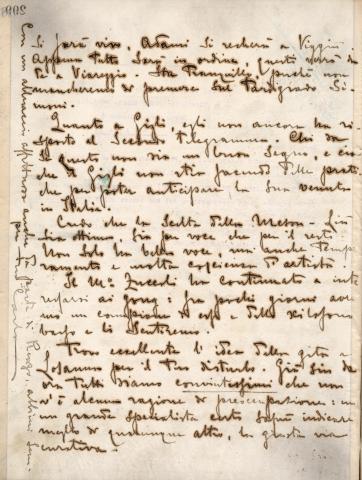 si farà vivo, Adami si recherà a Viggiù
Appena tutto sarà in ordine, questi verrà da
te a Viareggio. Sta tranquillo, perchè non
mancheremo di premere sul tardigrado Si-
moni.
Quanto a Gigli egli non ancora ha ri-
sposto al secondo telegramma. Chi sa
se questo non sia un buon segno, e cioè
che il Gigli non stia facendo delle prati-
che per poter anticipare la sua venuta
in Italia!
Credo che la scelta della Mason - Liù
sia ottima, sia per voce che per il resto.
Non solo ha bella voce, ma anche tempe-
ramento e molta coscienza d'artista.
Il M° Zuccoli ha continuato a inte-
ressarsi ai gong: fra pochi giorni avre-
mo un campione di essi e dello xilofono
basso e li sentiremo.
Trovo eccellente l'idea della gita a
Losanna per il tuo disturbo. Già sin da
ora tutti siamo convintissimi che non
v'è alcuna ragione di preoccupazione: ma
un grande specialista certo saprà indicare
meglio di qualunque altro, la giusta via
curativa.
Con un abbraccio affettuoso anche da parte di Renzo, abbimi sem-
pre tuo